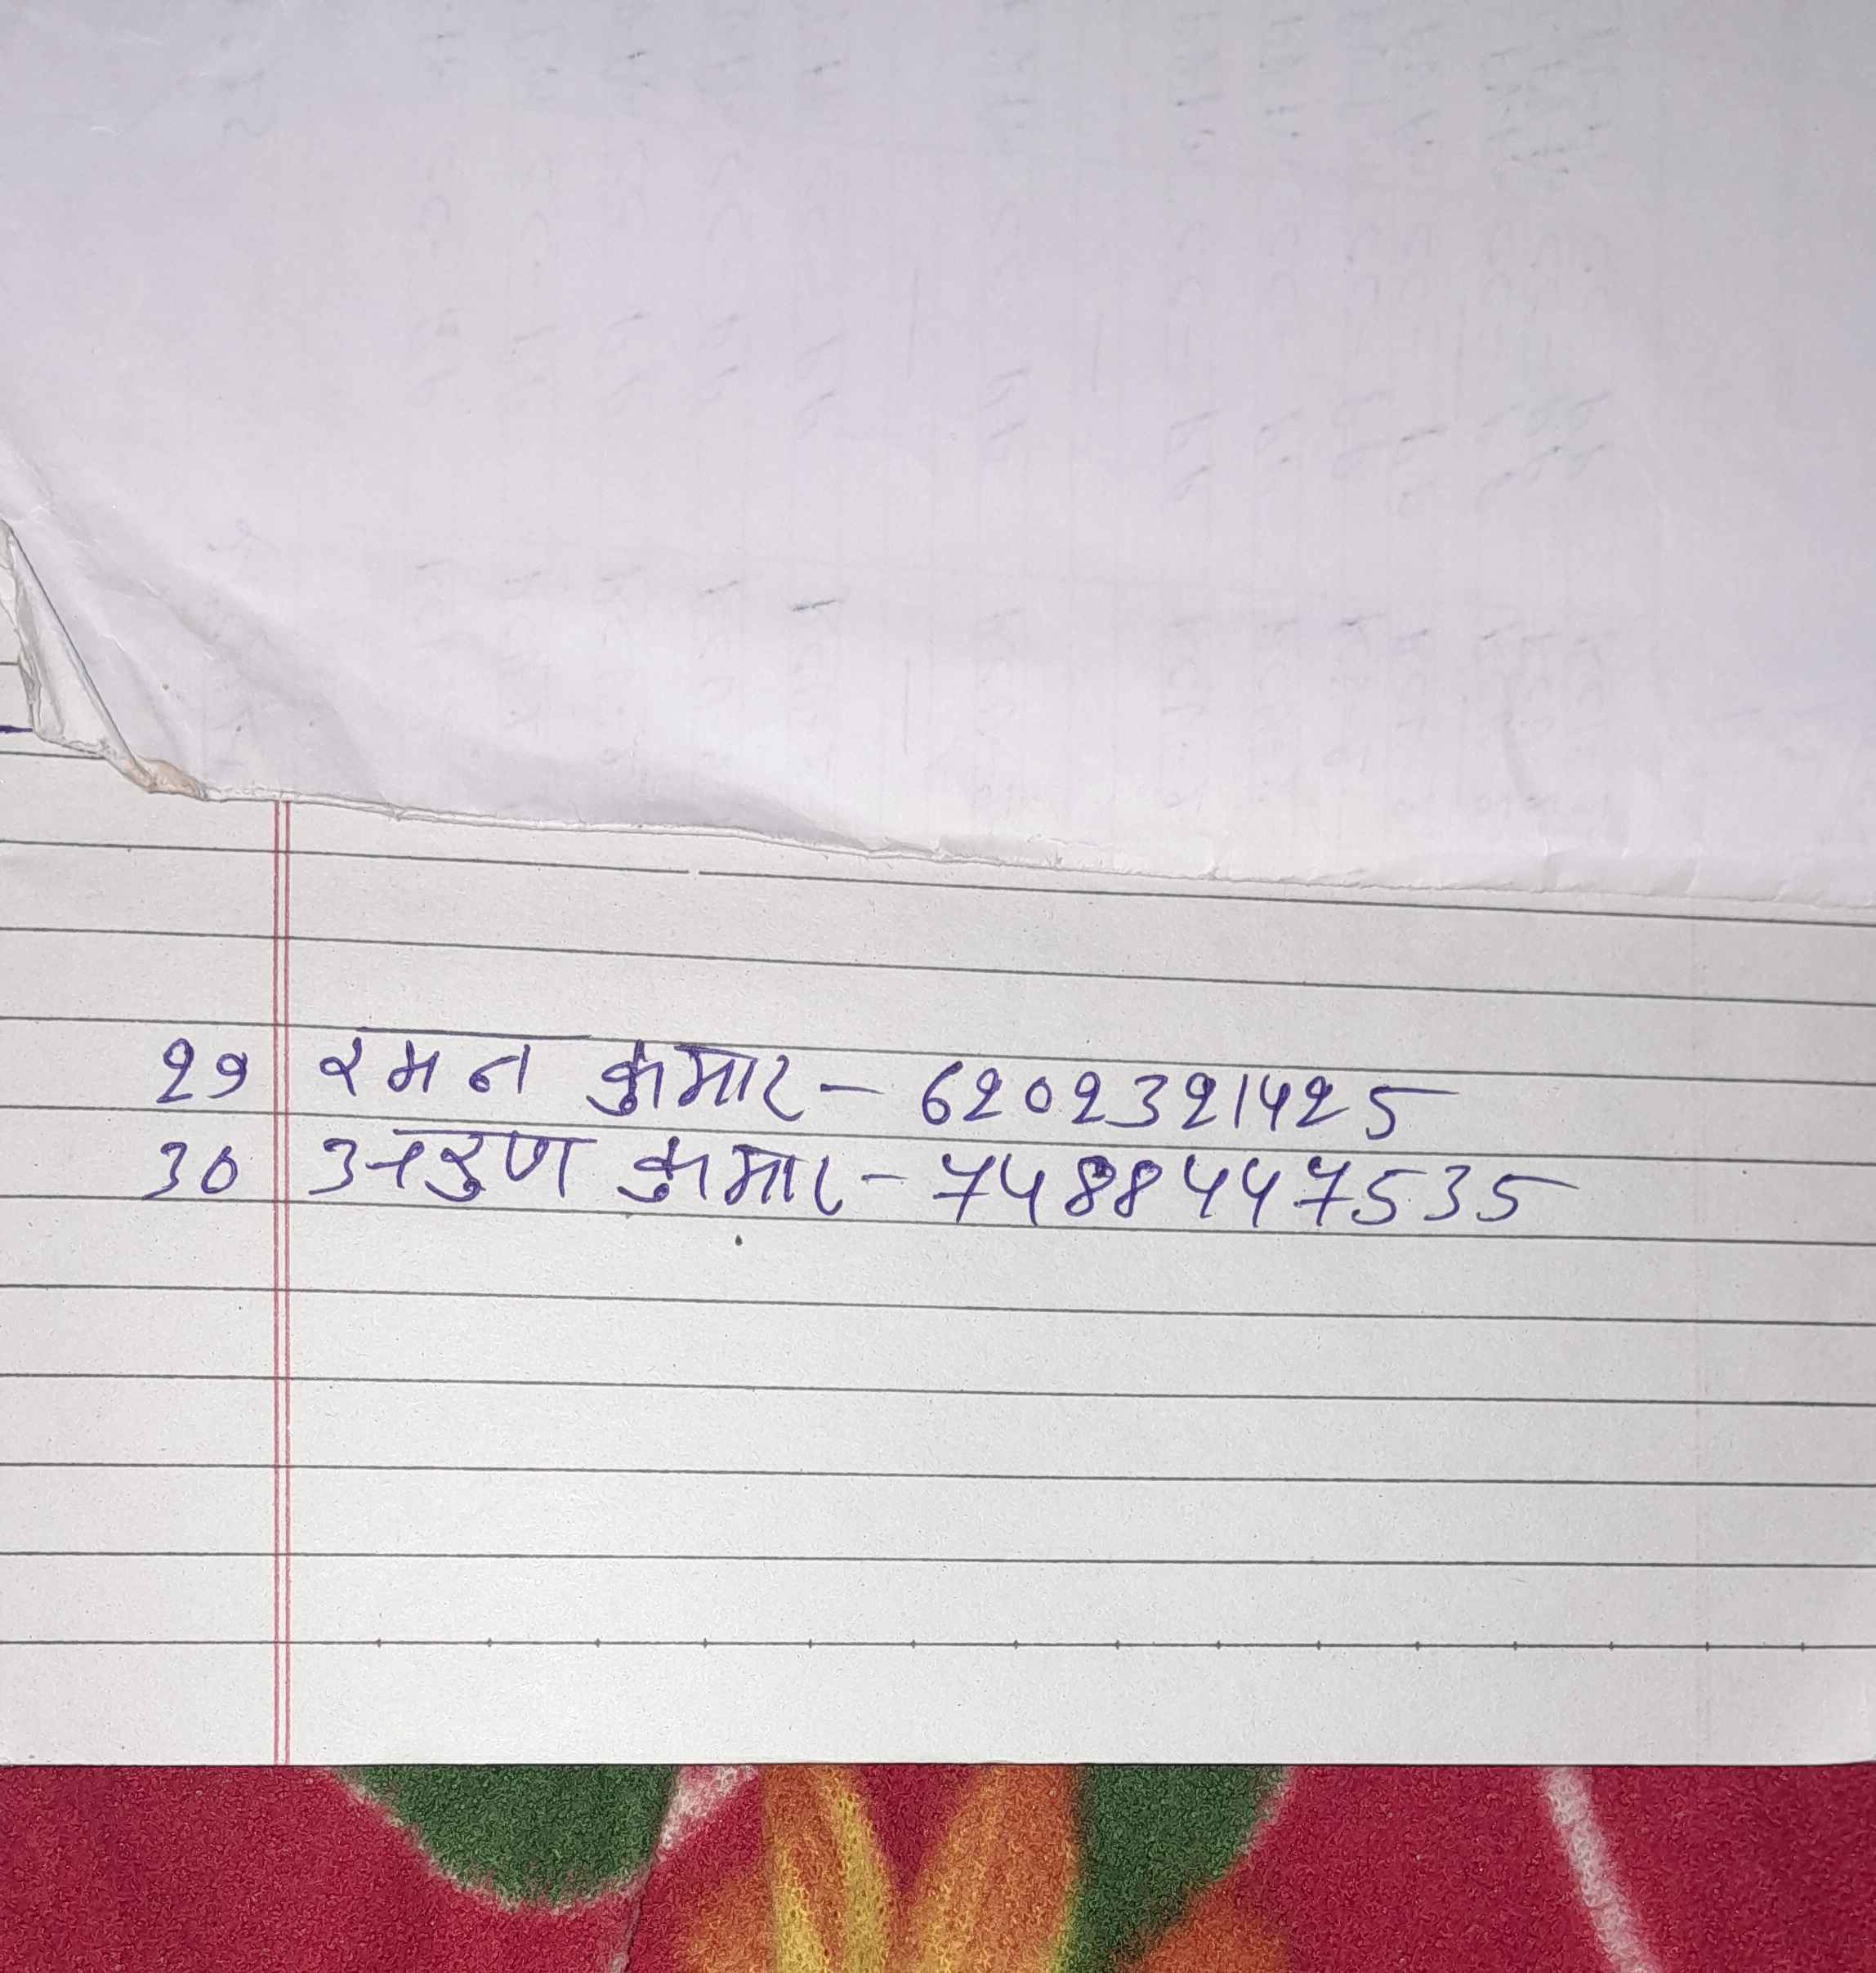 29 रमन कुमार - 6202321425
30 अरुण कुमार - 7488447535